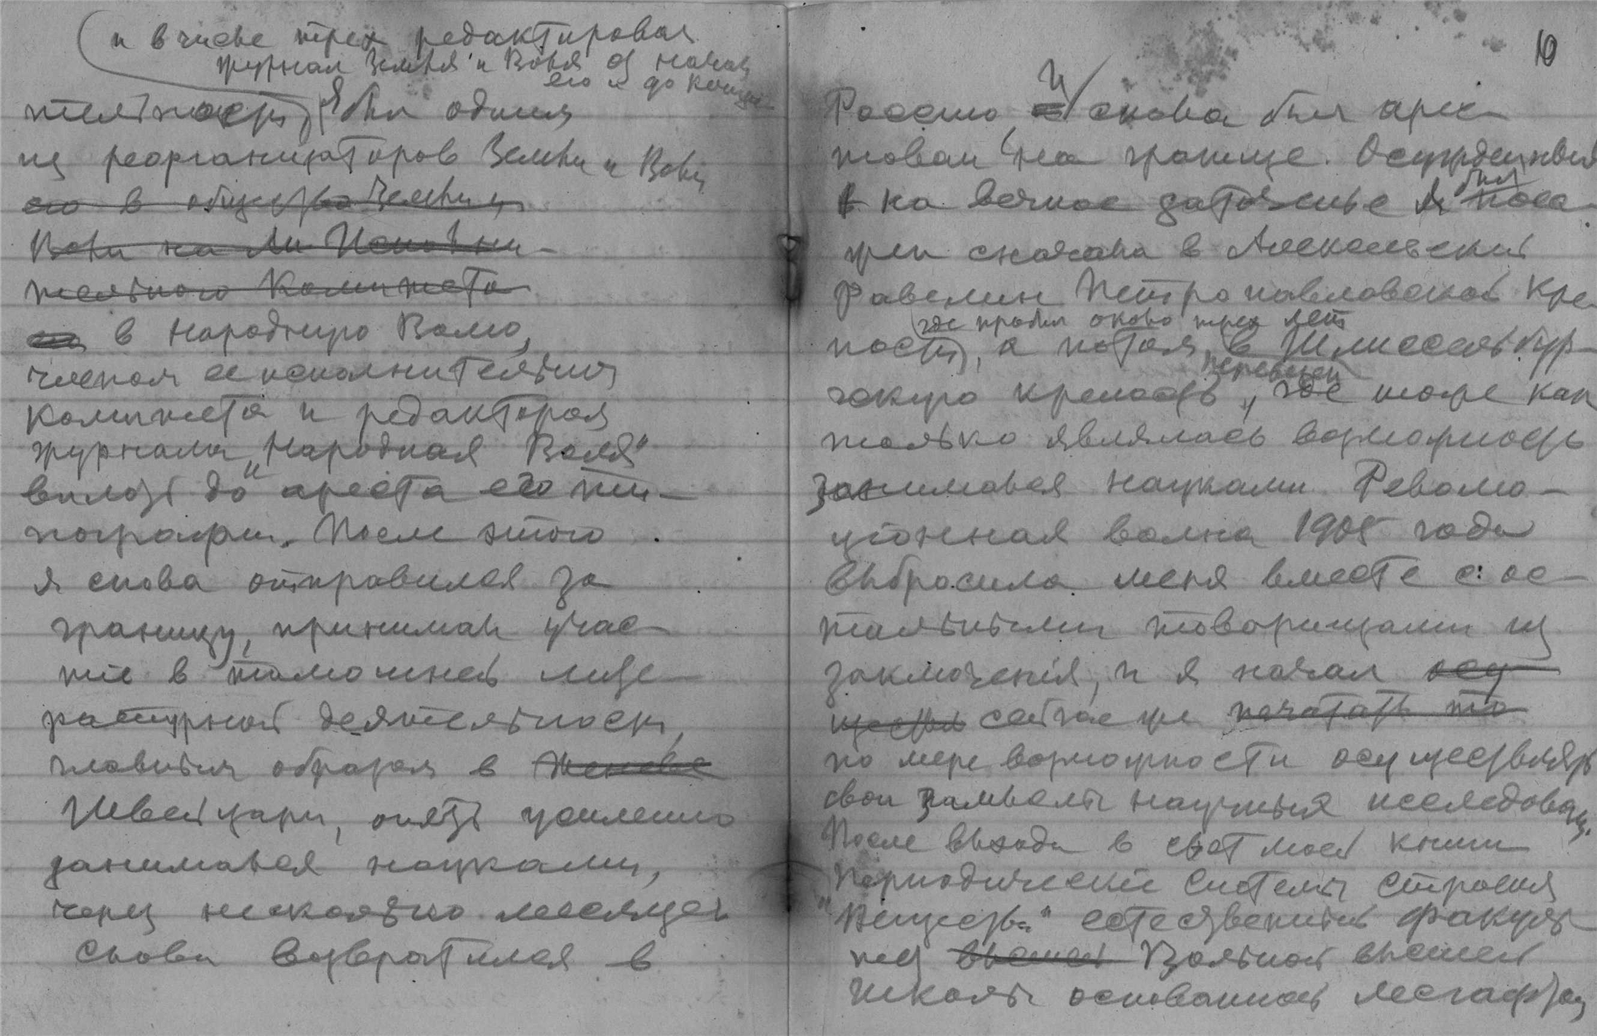 и в числе трех редактировал
журнал "Земля и Воля" от начала
его и до конца
тельность) Я был одним
из реорганизаторов Земли и Воли
его в общество Земли и
Воли на Исполни-
тельного Комитета
в Народную Волю,
членом ее исполнительного
комитета и редактором
журнала "Народная Воля"
вплоть до ареста его ти-
пографии. После этого
я снова отправился за
границу, принимал учас-
тие в тамошней лите-
ратурной деятельности,
главным образом в Женеве
Швейцарии, опять усиленно
занимался науками,
через несколько месяцев
снова возвратился в
10
Россию и снова был арес-
тован на границе. Осужденный
на вечное заточенье я был поса-
жен сначала в Алексеевский
равелин Петропавловской кре-
где пробыл около трех лет
пости, а потом в Шлиссельбур-
переведен
гскую крепость, где тоже как
только являлась возможность
занимался науками. Револю-
ционная волна 1905 года
выбросила меня вместе с ос-
тальными товарищами из
заключения, и я начал осу
сейчас же печатать то
по мере возможности осуществлять
свои замыслы научных исследований.
После выхода в свет моей книги
"Периодические Системы Строения
Вещества" естественный факуль-
тет высшей Вольной высшей
школы основанной Лесгафтом